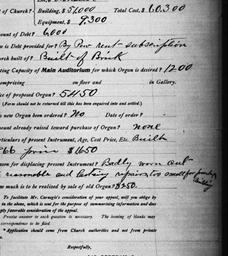 of Church? { Building, $ 51000 } Total Cost, $ 60300
Equipment, $ 9300
Amount of Debt? 6000
is Debt provided for? By Pew rent - subscription
Church built of? Built of Brick
Seating Capacity of Main Auditorium for which Organ is desired? 1200
comprising on floor and in Gallery.
of proposed Organ? 5450
(Form should not be returned till this has been enquired into and settled.)
new Organ been ordered? No Date of order?
amount already raised toward purchase of Organ? none
Particulars of present Instrument, Age, Cost Price, Etc. Built
price $1650
Reason for displacing present Instrument? Badly worn out
reasonable and lasting repairs too
much is to be realized by sale of old Organ? $250.
To facilitate Mr. Carnegie's consideration of your appeal, will you oblige by
in the above, which is used for the purpose of summarizing information and due
favorable consideration of the appeal.
Precise answer to each question is necessary. The leaving of blanks may
correspondence to be filed.
Application should come from Church authorities and not from private
Respectfully,